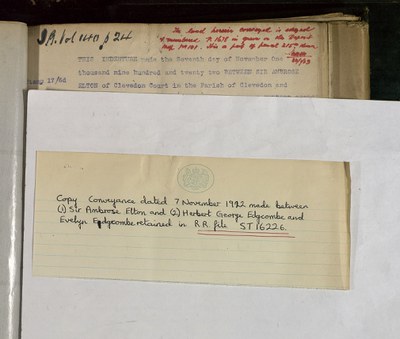 JA. Vol 140 p 24
The land herein conveyed is edged
& numbered T. 1678 in green on the Deposit
THIS INDENTURE made the Seventh day of November One
thousand nine hundred and twenty two BETWEEN SIR AMBROSE
ELTON of Clevedon Court in the Parish of Clevedon and
Copy Conveyance dated 7 November 1922 made between
(1) Sir Ambrose Elton and (2) Herbert George Edgcombe and
Evelyn Edgcombe retained in R.R. file ST 16226.